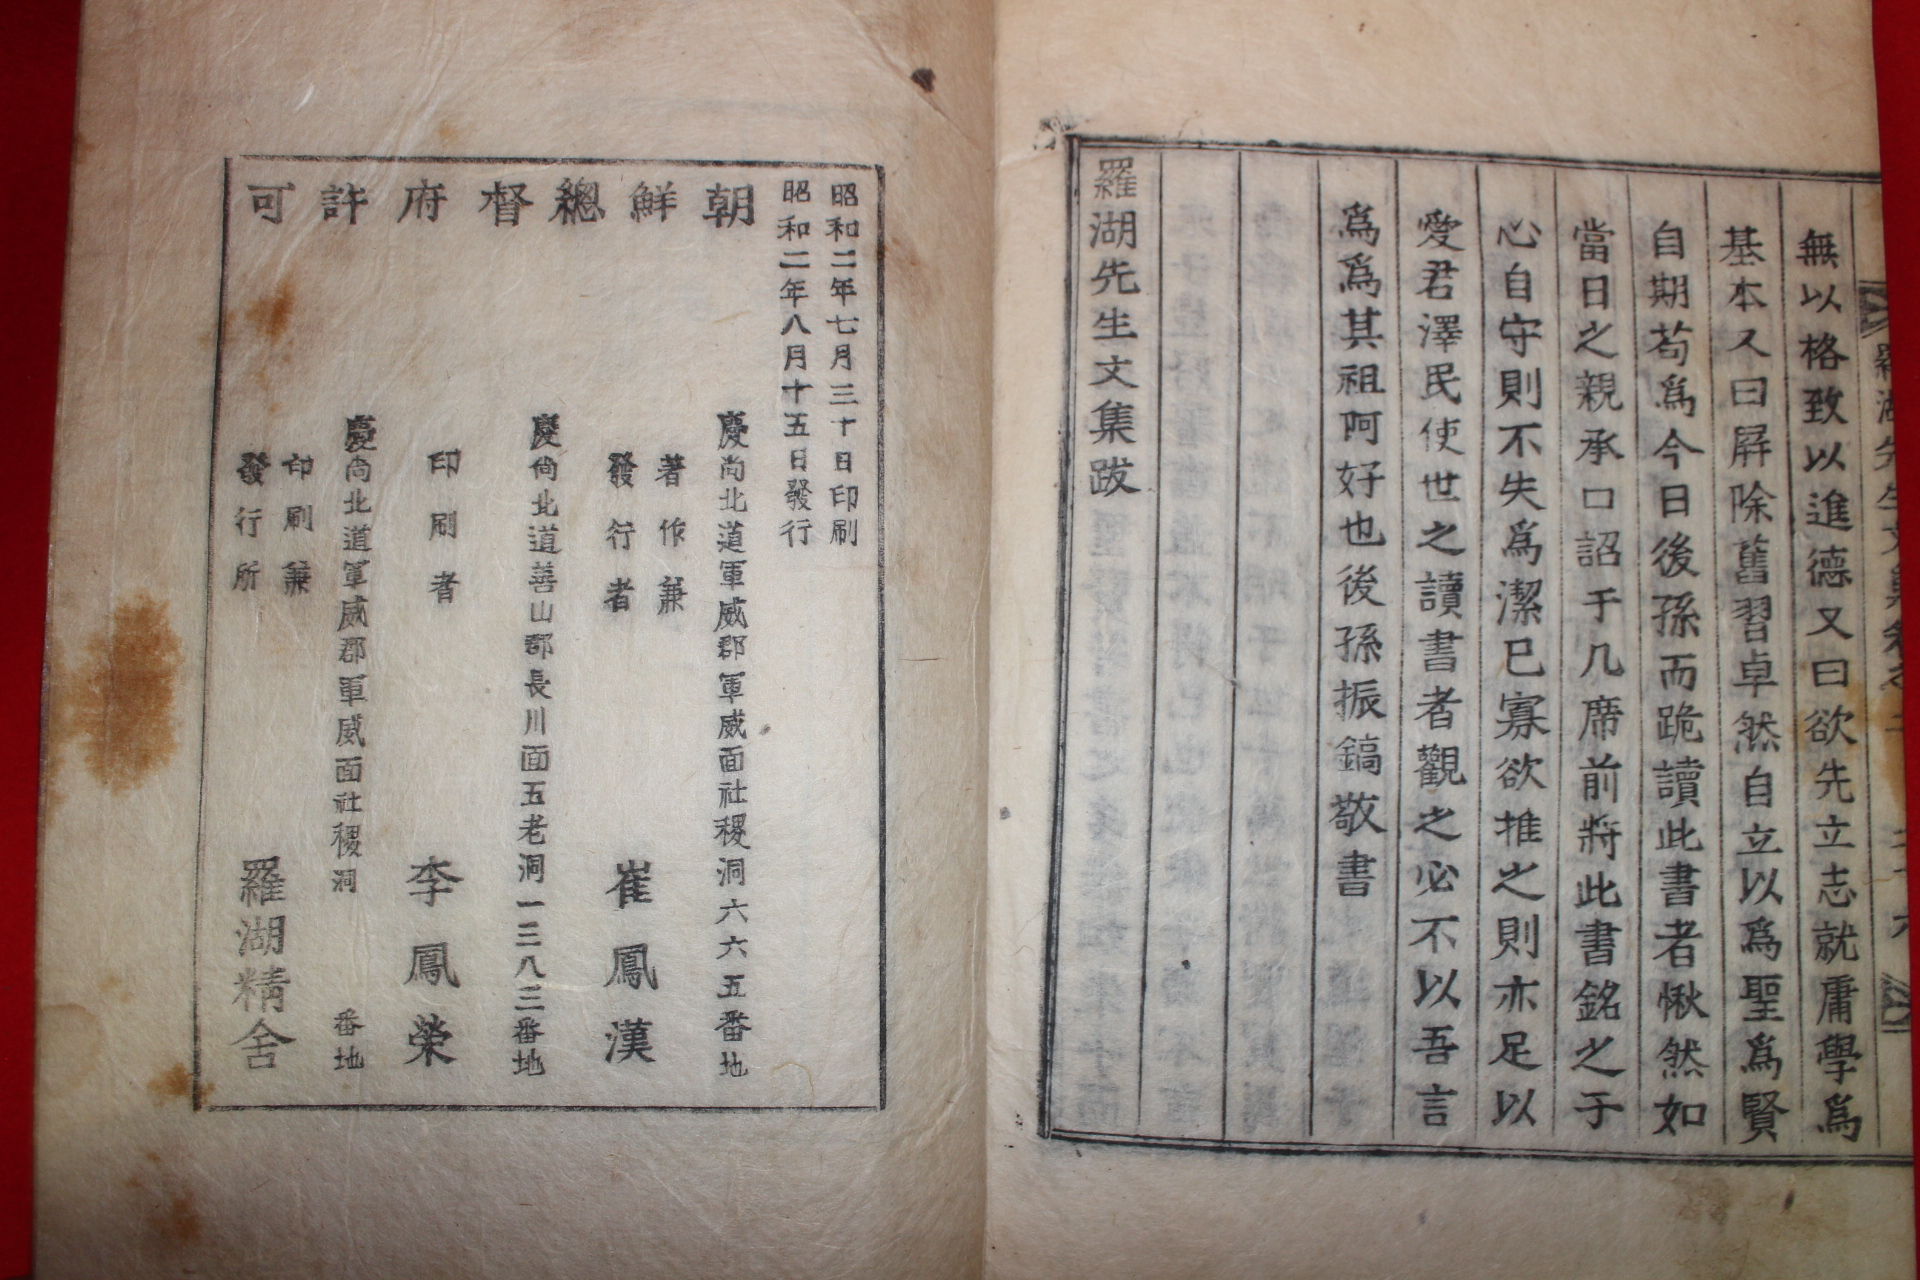 無以格致以進德又曰欲先立志就庸學爲
基本又曰屛除舊習卓然自立以爲聖爲賢
自期苟爲今日後孫而跪讀此書者愀然如
當日之親承口詔于几席前將此書銘之于
心自守則不失爲潔已寡欲推之則亦足以
愛君澤民使世之讀書者觀之必不以吾言
爲爲其祖阿好也後孫振鎬敬書
羅湖先生文集跋
昭和二年七月三十日印刷
昭和二年八月十五日發行
朝鮮總督府許可
慶尙北道軍威郡軍威面社稷洞六六五番地
著作兼
發行者
崔鳳漢
慶尙北道善山郡長川面五老洞一三八三番地
印刷者
李鳳榮
慶尙北道軍威郡軍威面社稷洞 番地
印刷兼
發行所
羅湖精舍